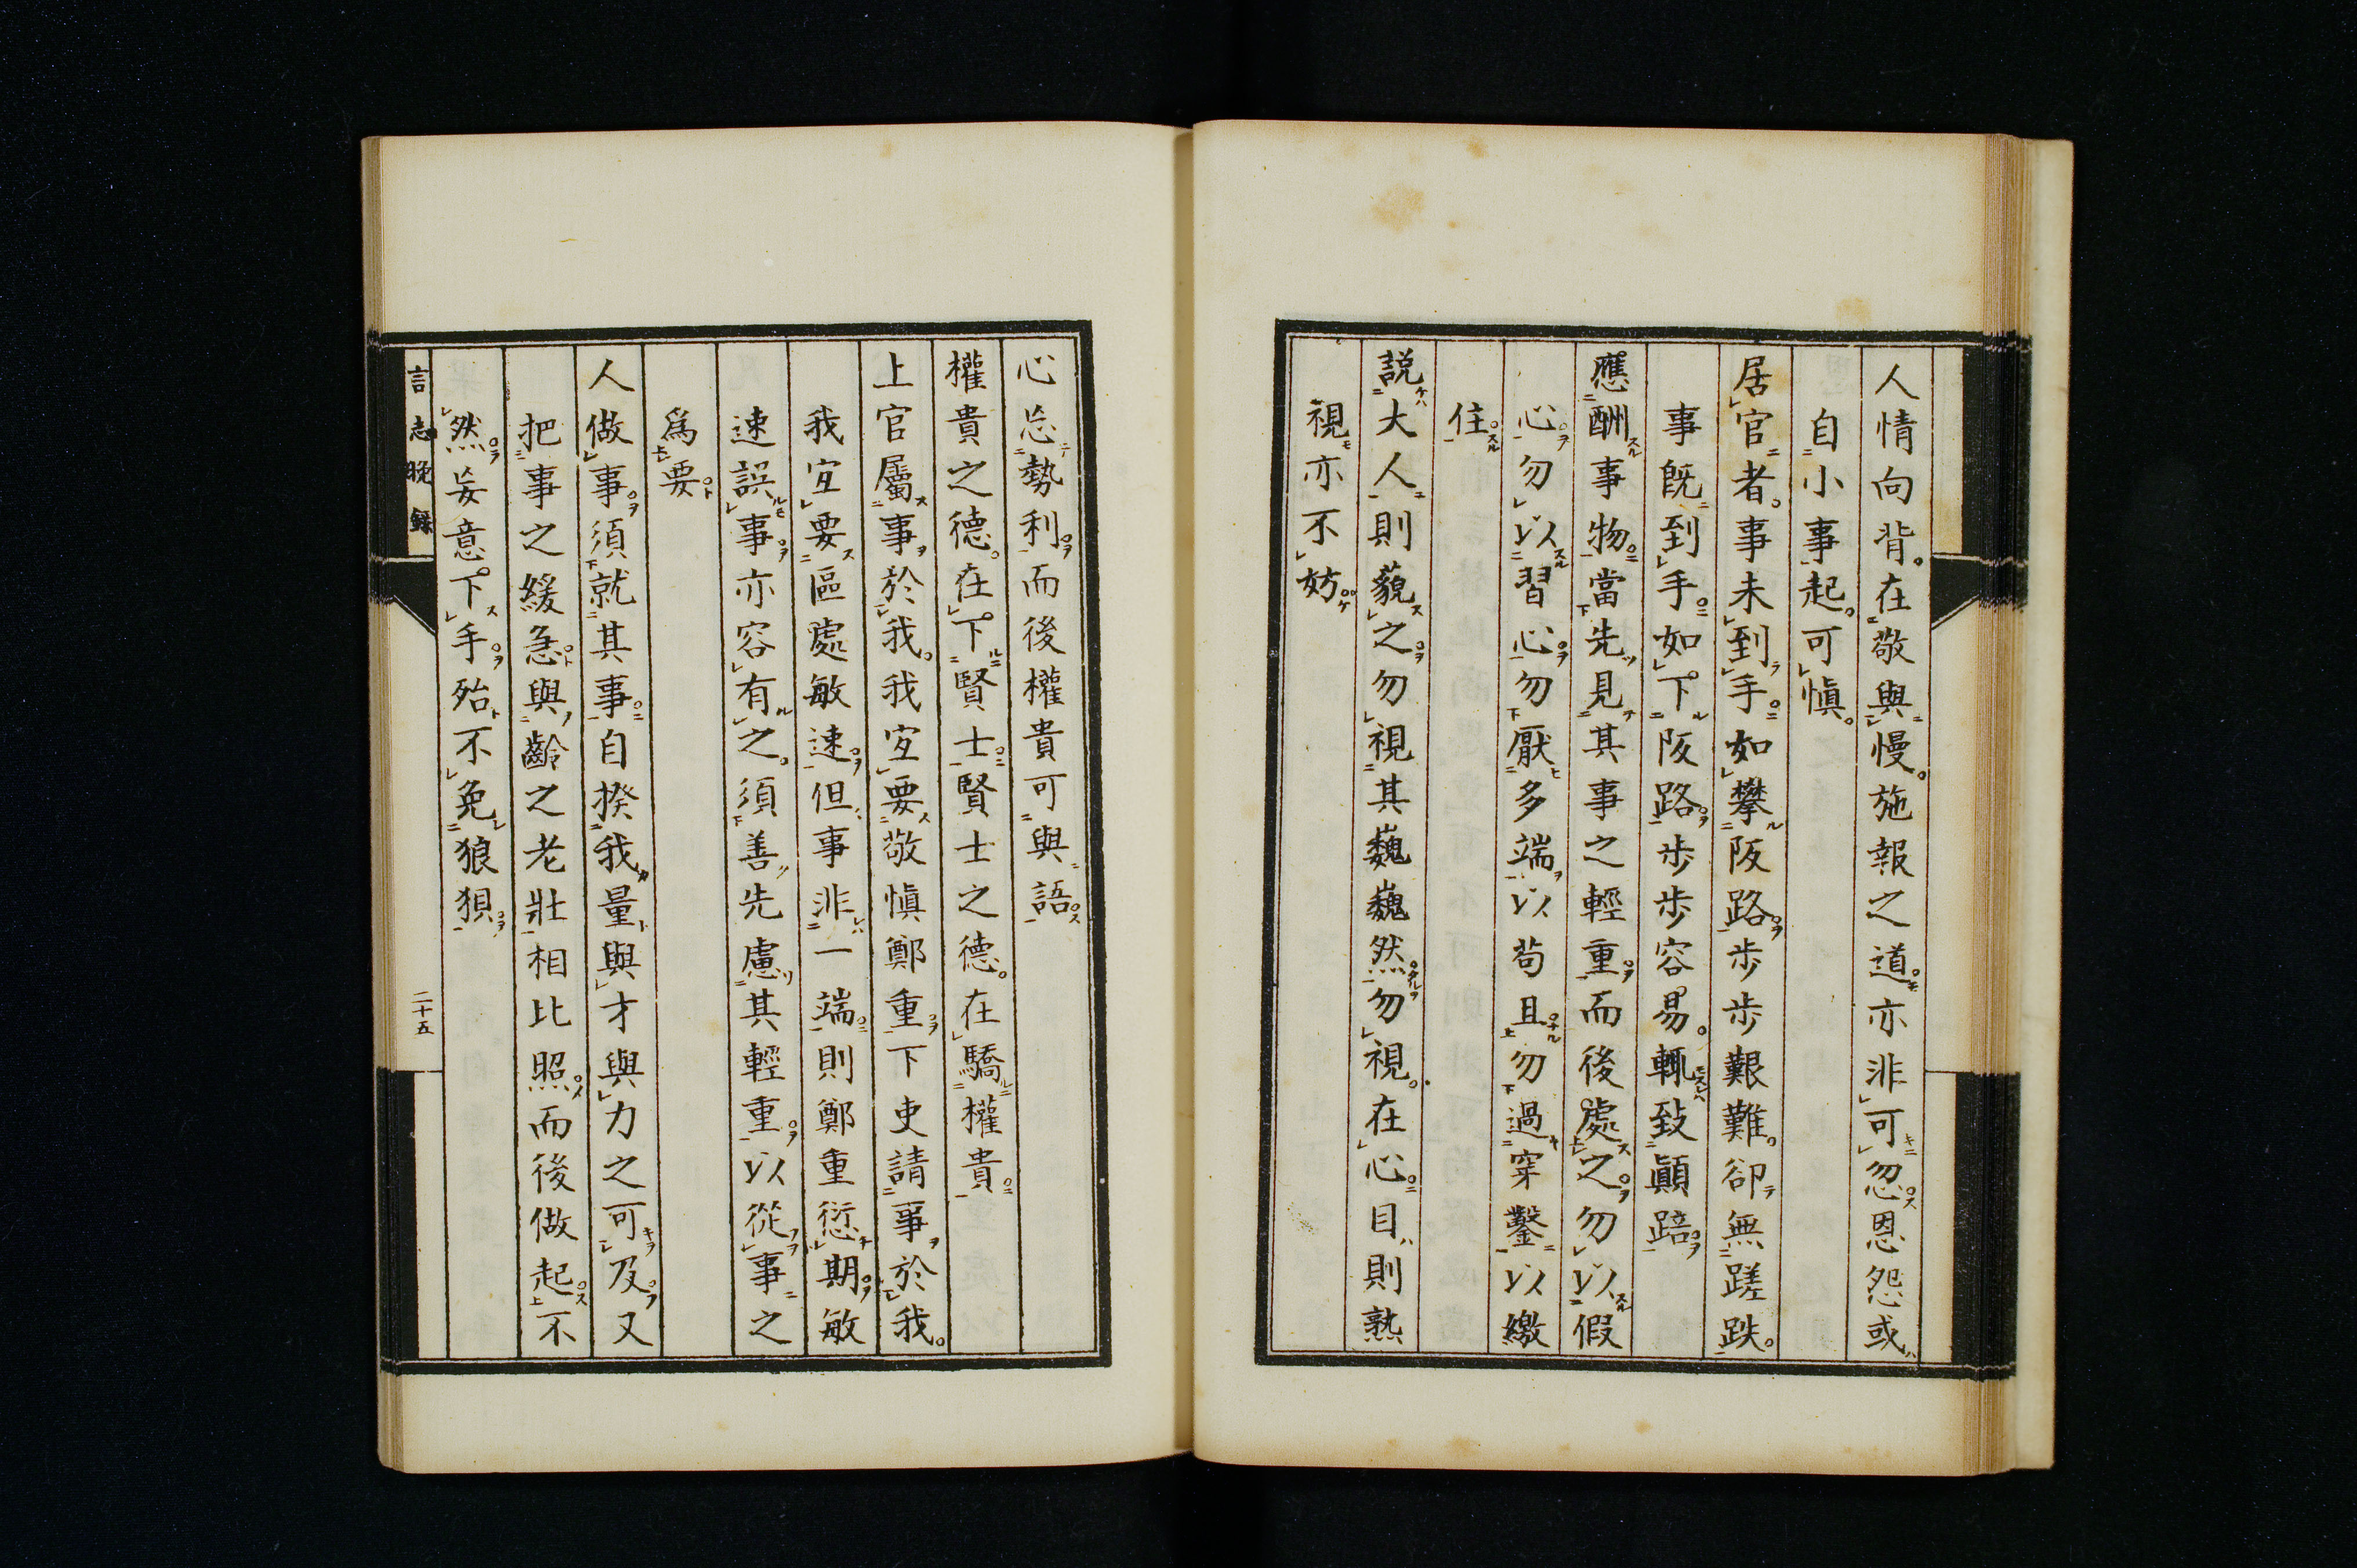 人情向背。在敬與慢。施報之道亦非可忽恩怨或
自小事起。可愼。
居官者。事未到手。如攀阪路。歩歩艱難。卻無蹉跌。
事既到手。如下阪路。歩歩容易。輒致顚踣。
應酬事物。當先見其事之輕重。而後處之。勿以假
心。勿以習心。勿厭多端。以苟且。勿過穿鑿。以繳
住。
説大人則藐之。勿視其巍巍然。勿視。在心。目則熟
視亦不妨。
心忘勢利。而後權貴可與語。
權貴之德。在下賢士。賢士之德。在驕權貴。
上官屬事於我。我宜要敬愼鄭重。下吏請事於我。
我宜要區處敏速。但事非一端。則鄭重愆期。敏
速誤事。亦容有之。須善先慮其輕重。以從事之
爲要。
人做事。須就其事。自揆我量與才與力之可及。又
把事之緩急。與齡之老壯相比照。而後做起。不
然妄意。下手。殆不免狼狽。
言志晩錄
二十五